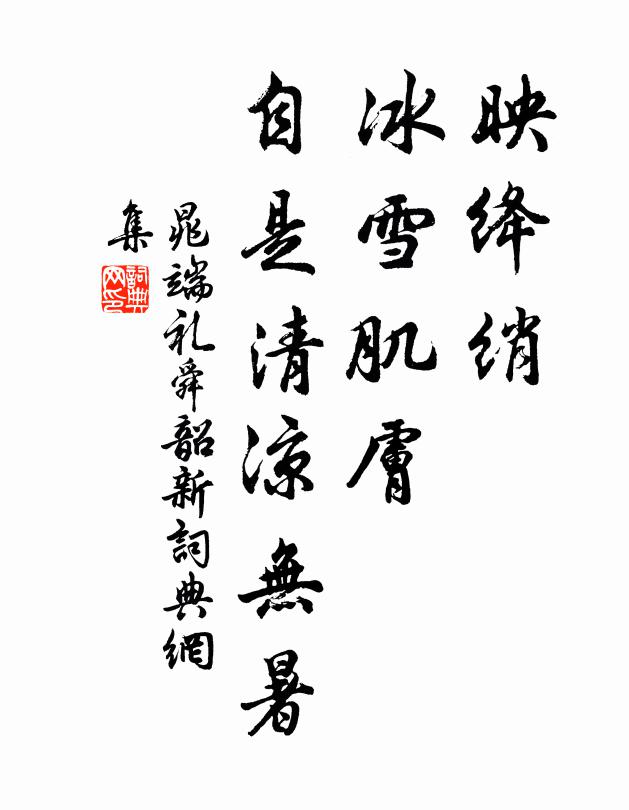 映绛绡
冰雪肌膚
自是清涼無暑
晁端礼舜韶新詞典網
集
詞典网印